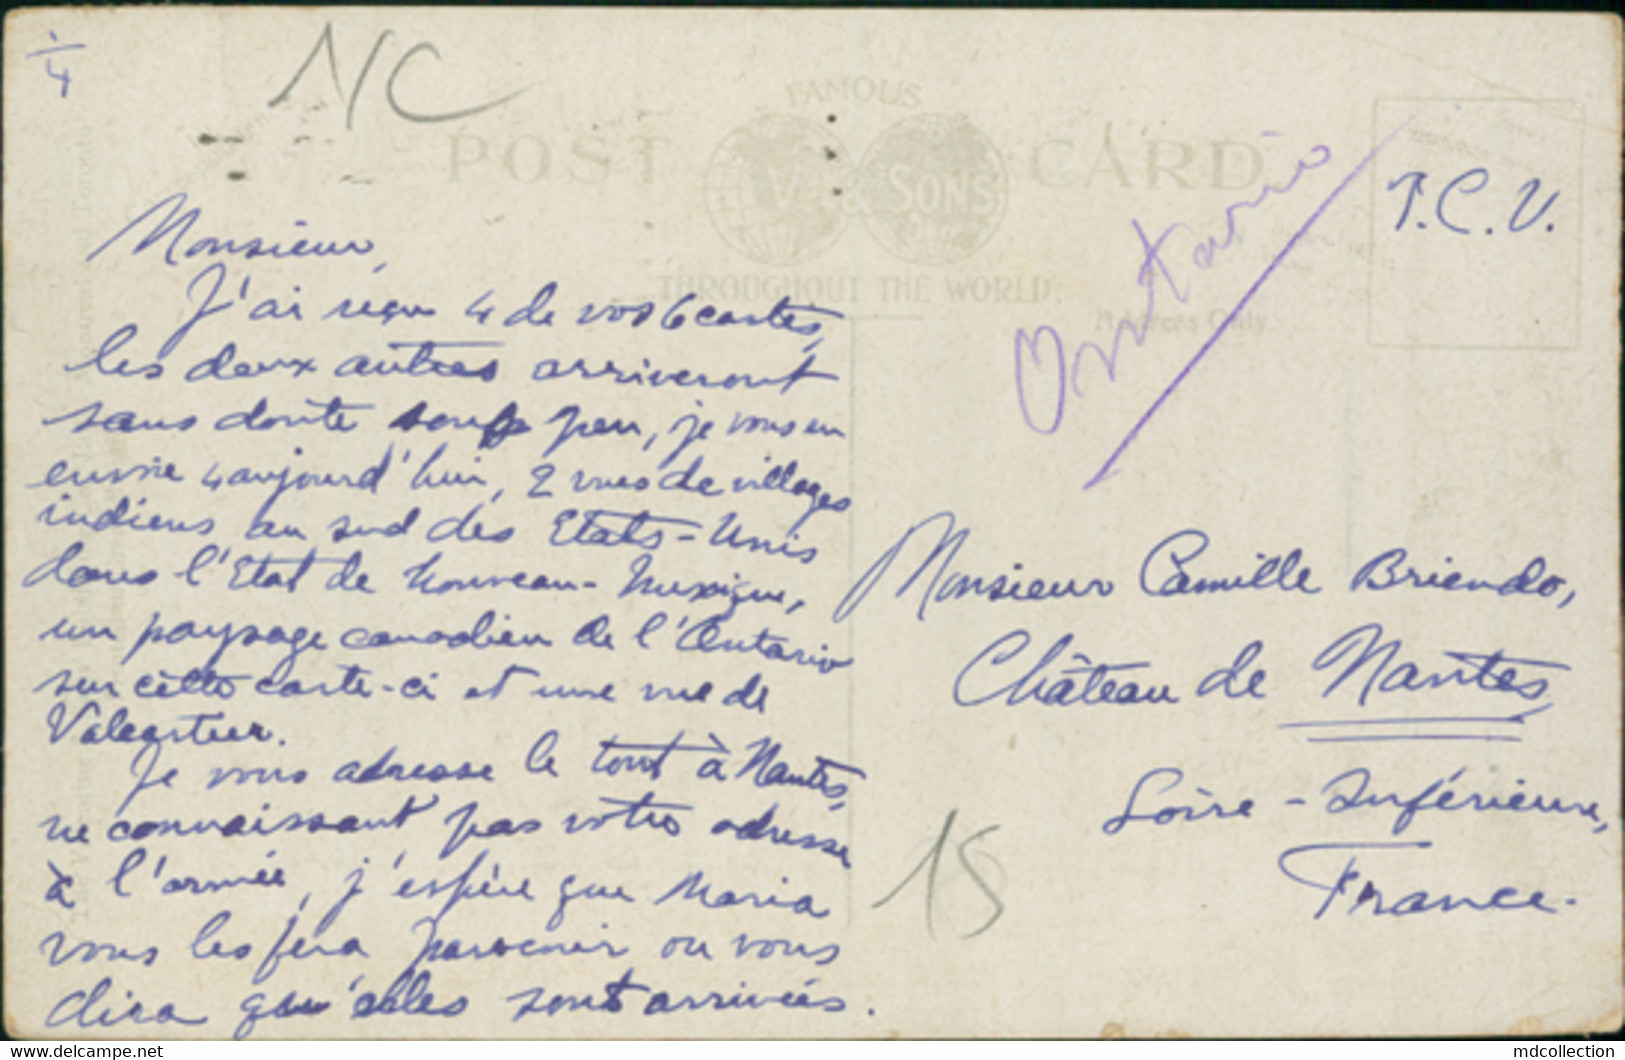 1/4
NC
FAMOUS
POST CARD
V. & SONS
THROUGHOUT THE WORLD.
Address Only.
Ontario
T.C.V.
Monsieur,
J'ai reçu 4 de vos 6 cartes,
les deux autres arriveront
sans doute sous peu, je vous en
envoie 4 aujourd'hui, 2 vues de villages
indiens au sud des Etats-Unis
dans l'Etat de Nouveau-Mexique,
un paysage canadien de l'Ontario
sur cette carte-ci et une vue de
Valcartier.
Je vous adresse le tout à Nantes,
ne connaissant pas votre adresse
à l'armée, j'espère que Maria
vous les fera parvenir ou vous
dira qu'elles sont arrivées.
Monsieur Camille Briendo,
Château de Nantes,
Loire-Inférieure,
France.
15
delcampe.net
mdcollection